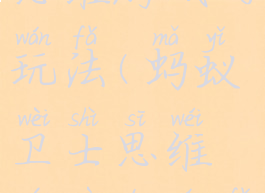 wán fǎ mǎ yǐ
玩法(蚂蚁
wèi shì sī wéi
卫士思维